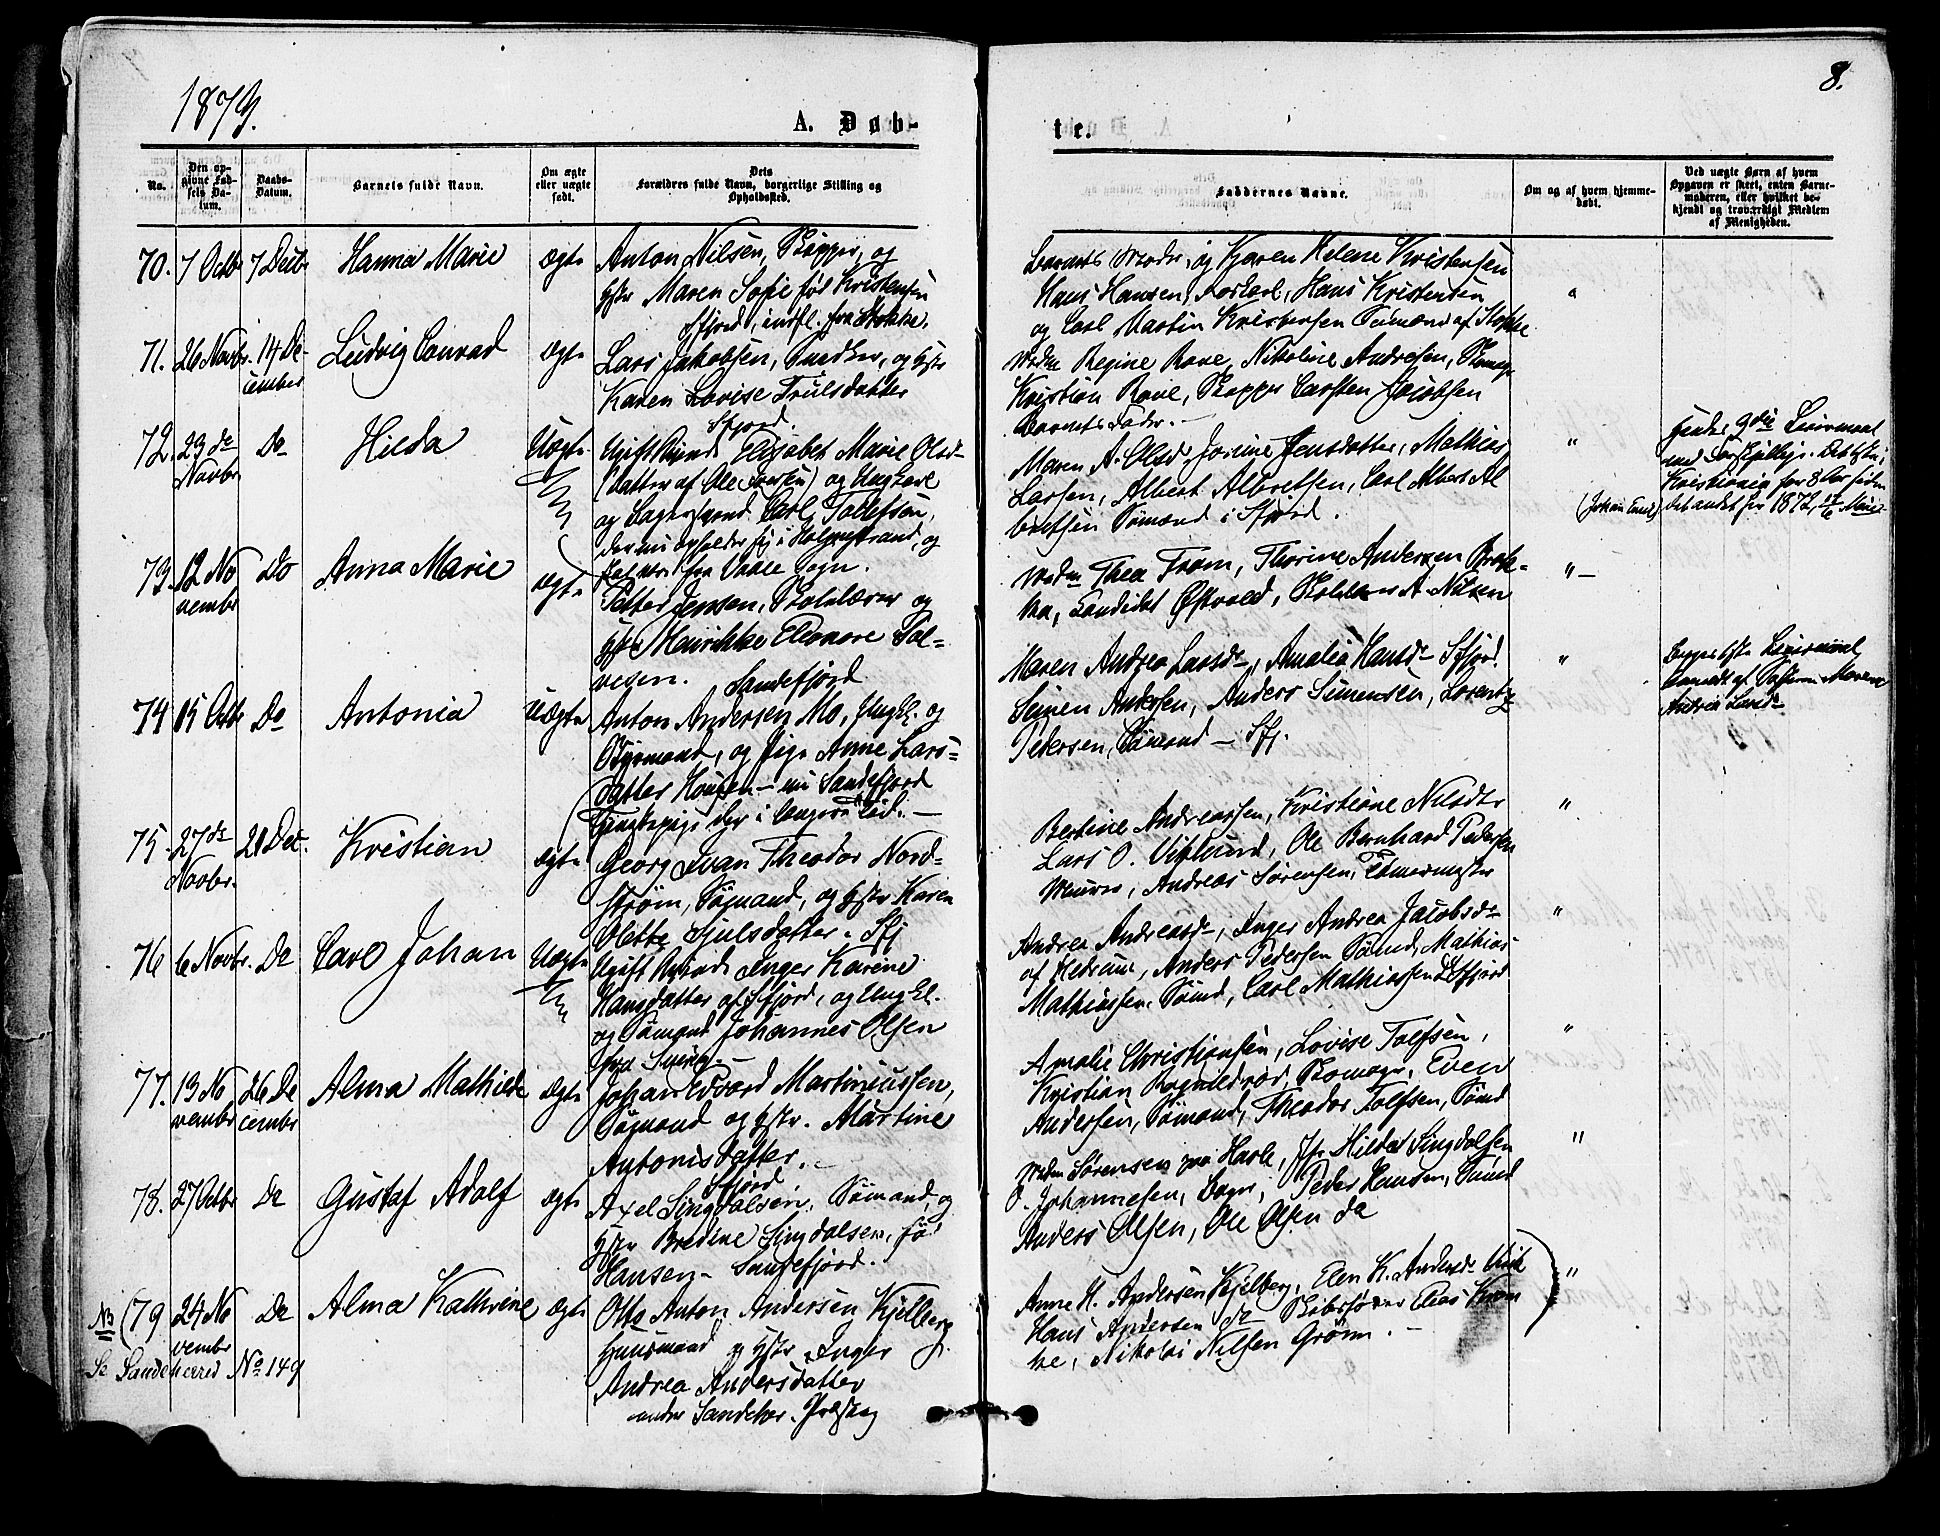 1879.
8.
A. Døb-
te.
No.
Den op-
givne Fød-
sels Da-
tum.
Daabs-
Datum.
Barnets fulde Navn.
Om ægte
eller uægte
født.
Dets
Forældres fulde Navn, borgerlige Stilling og
Opholdssted.
Faddernes Navne.
Om og af hvem hjemme-
døbt.
Ved uægte Børn af hvem
Opgaven er skeet, enten Barne-
moderen, eller hvilket be-
kjendt og troværdigt Medlem
af Menigheden.
70. 7 Octbr 7 Decbr Hanna Marie ægte
Anton Nilsen, Skipper, og
Hstr Maren Sofie fød Kristensen
Sfjord, indfl. fra Stokke.
Barnets Moder, og Karen Helene Kristensen
Hans Hansen, Hans Kristensen
og Carl Martin Kristensen Sømænd af Stokke
"
71. 26 Novbr. 14 De-
cember
Ludvig Conrad ægte
Lars Jakobsen, Snedker, og Hstr
Karen Lovise Trulsdatter
Sfjord.
Madm Regine Rove, Nikoline Andresen, Skomag.
Kristian Rove, Skipper Carsten Jacobsen
Barnets Fader.
72. 23de
Novbr
Do Hilda Uægte
Ugift Elisabet Marie Olsd-
(datter af Ole Iversen) og Ungkarl
og Carl Tollefsen,
der nu opholder sig i Holmestrand, og
fra Vaale Sogn.
Maren A. Olsd, Jorine Jensdatter, Mathias
Larsen, Albert Albretsen, Carl Albert Al
bretsen Sømænd i Sfjord.
"
Hendes 9de Leiermaal
med
Kristiania for 8 Aar siden
(Johan Emil) det andet for 1872,
73. 12 No
vembr
Do Anna Marie ægte
Petter Jenssen, Skolelærer og
Hstr Henrikke Eleonore Tol-
vesen. Sandefjord
Madm Thea Fram, Thorine Andersen
Candidat Østvold, A. Nilsen
" —
74 15 Octbr Do Antonia Uægte
Anton Andersen Mo, Ungk. og
Styrmand, og Pige Anne Lars-
datter Hougen — nu Sandefjord
der i længere Tid. —
Maren Andrea Larsd-, Amalia Hansd- Sfjord
Simen Andersen, Anders Simensen, Lorentz
Pedersen, Sømænd — Sfj.
"
Begges 1ste Leiermaal
af Maren
Andrea Larsd-
75. 27de
Novbr.
21 Dec. Kristian ægte
Georg Ivan Theodor Nord-
strøm, Sømand, og Hstr Karen
Olette Sjulsdatter - Sfj
Bertine Andreassen, Kristiane Nilsdtr
Lars O. Viglund, Ole Bernhard Pedersen
Murer, Andreas Sørensen, Tømermester
"
76 6 Novbr. Do Carl Johan Uægte
Ugift Inger Karine
Hansdatter af Sfjord, og Ungkl.
og Sømand Johannes Olsen
fra
Andrea Andreasd-, Inger Andrea Jacobsd-
af Hedrum, Anders Pedersen Sømd, Mathias
Mathiassen Sømd, Carl Mathiassen Sfjord
"
77. 13 No
vembr
26 De
cembr
Alma Mathilde ægte
Johan Edvard Martiniussen,
Sømand og Hstr. Martine
Antonisdatter.
Sfjord.
Amalie Christiansen, Lovise Tolfsen,
Kristian Skomager, Even
Andersen, Sømand, Theodor Tolfsen, Sømd
"
78. 27 Octbr Do Gustaf Adolf ægte
Axel Singdalsen, Sømand, og
Hstr Bredine Singdalsen, fød
Hansen - Sandefjord.
Madm Sørensen paa Hasle, Jfr Hilda Singdalsen
O. Johannesen, Peder Hansen, Sømd
Anders Olsen, Ole Olsen do
"
NB (79 24 No
vembr
Do Alma Kathrine ægte
Otto Anton Andersen Kjelberg
Huusmand og Hstr Inger
Andrea Andersdatter
under Sandeher. Præsteg
Anne H. Andersen Kjelberg, Elen K. Andersd-
Hans Andersen do Skibsfører Elias
Nikolai Nilsen Grønn. —
"
Se Sandeherred No 149